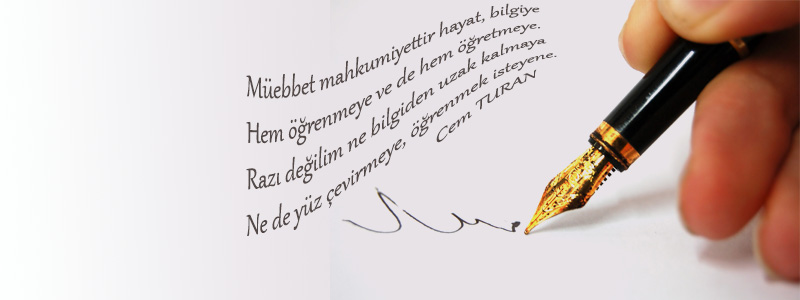 Müebbet mahkumiyettir hayat, bilgiye
Hem öğrenmeye ve de hem öğretmeye.
Razı değilim ne bilgiden uzak kalmaya
Ne de yüz çevirmeye, öğrenmek isteyene.
Cem TURAN